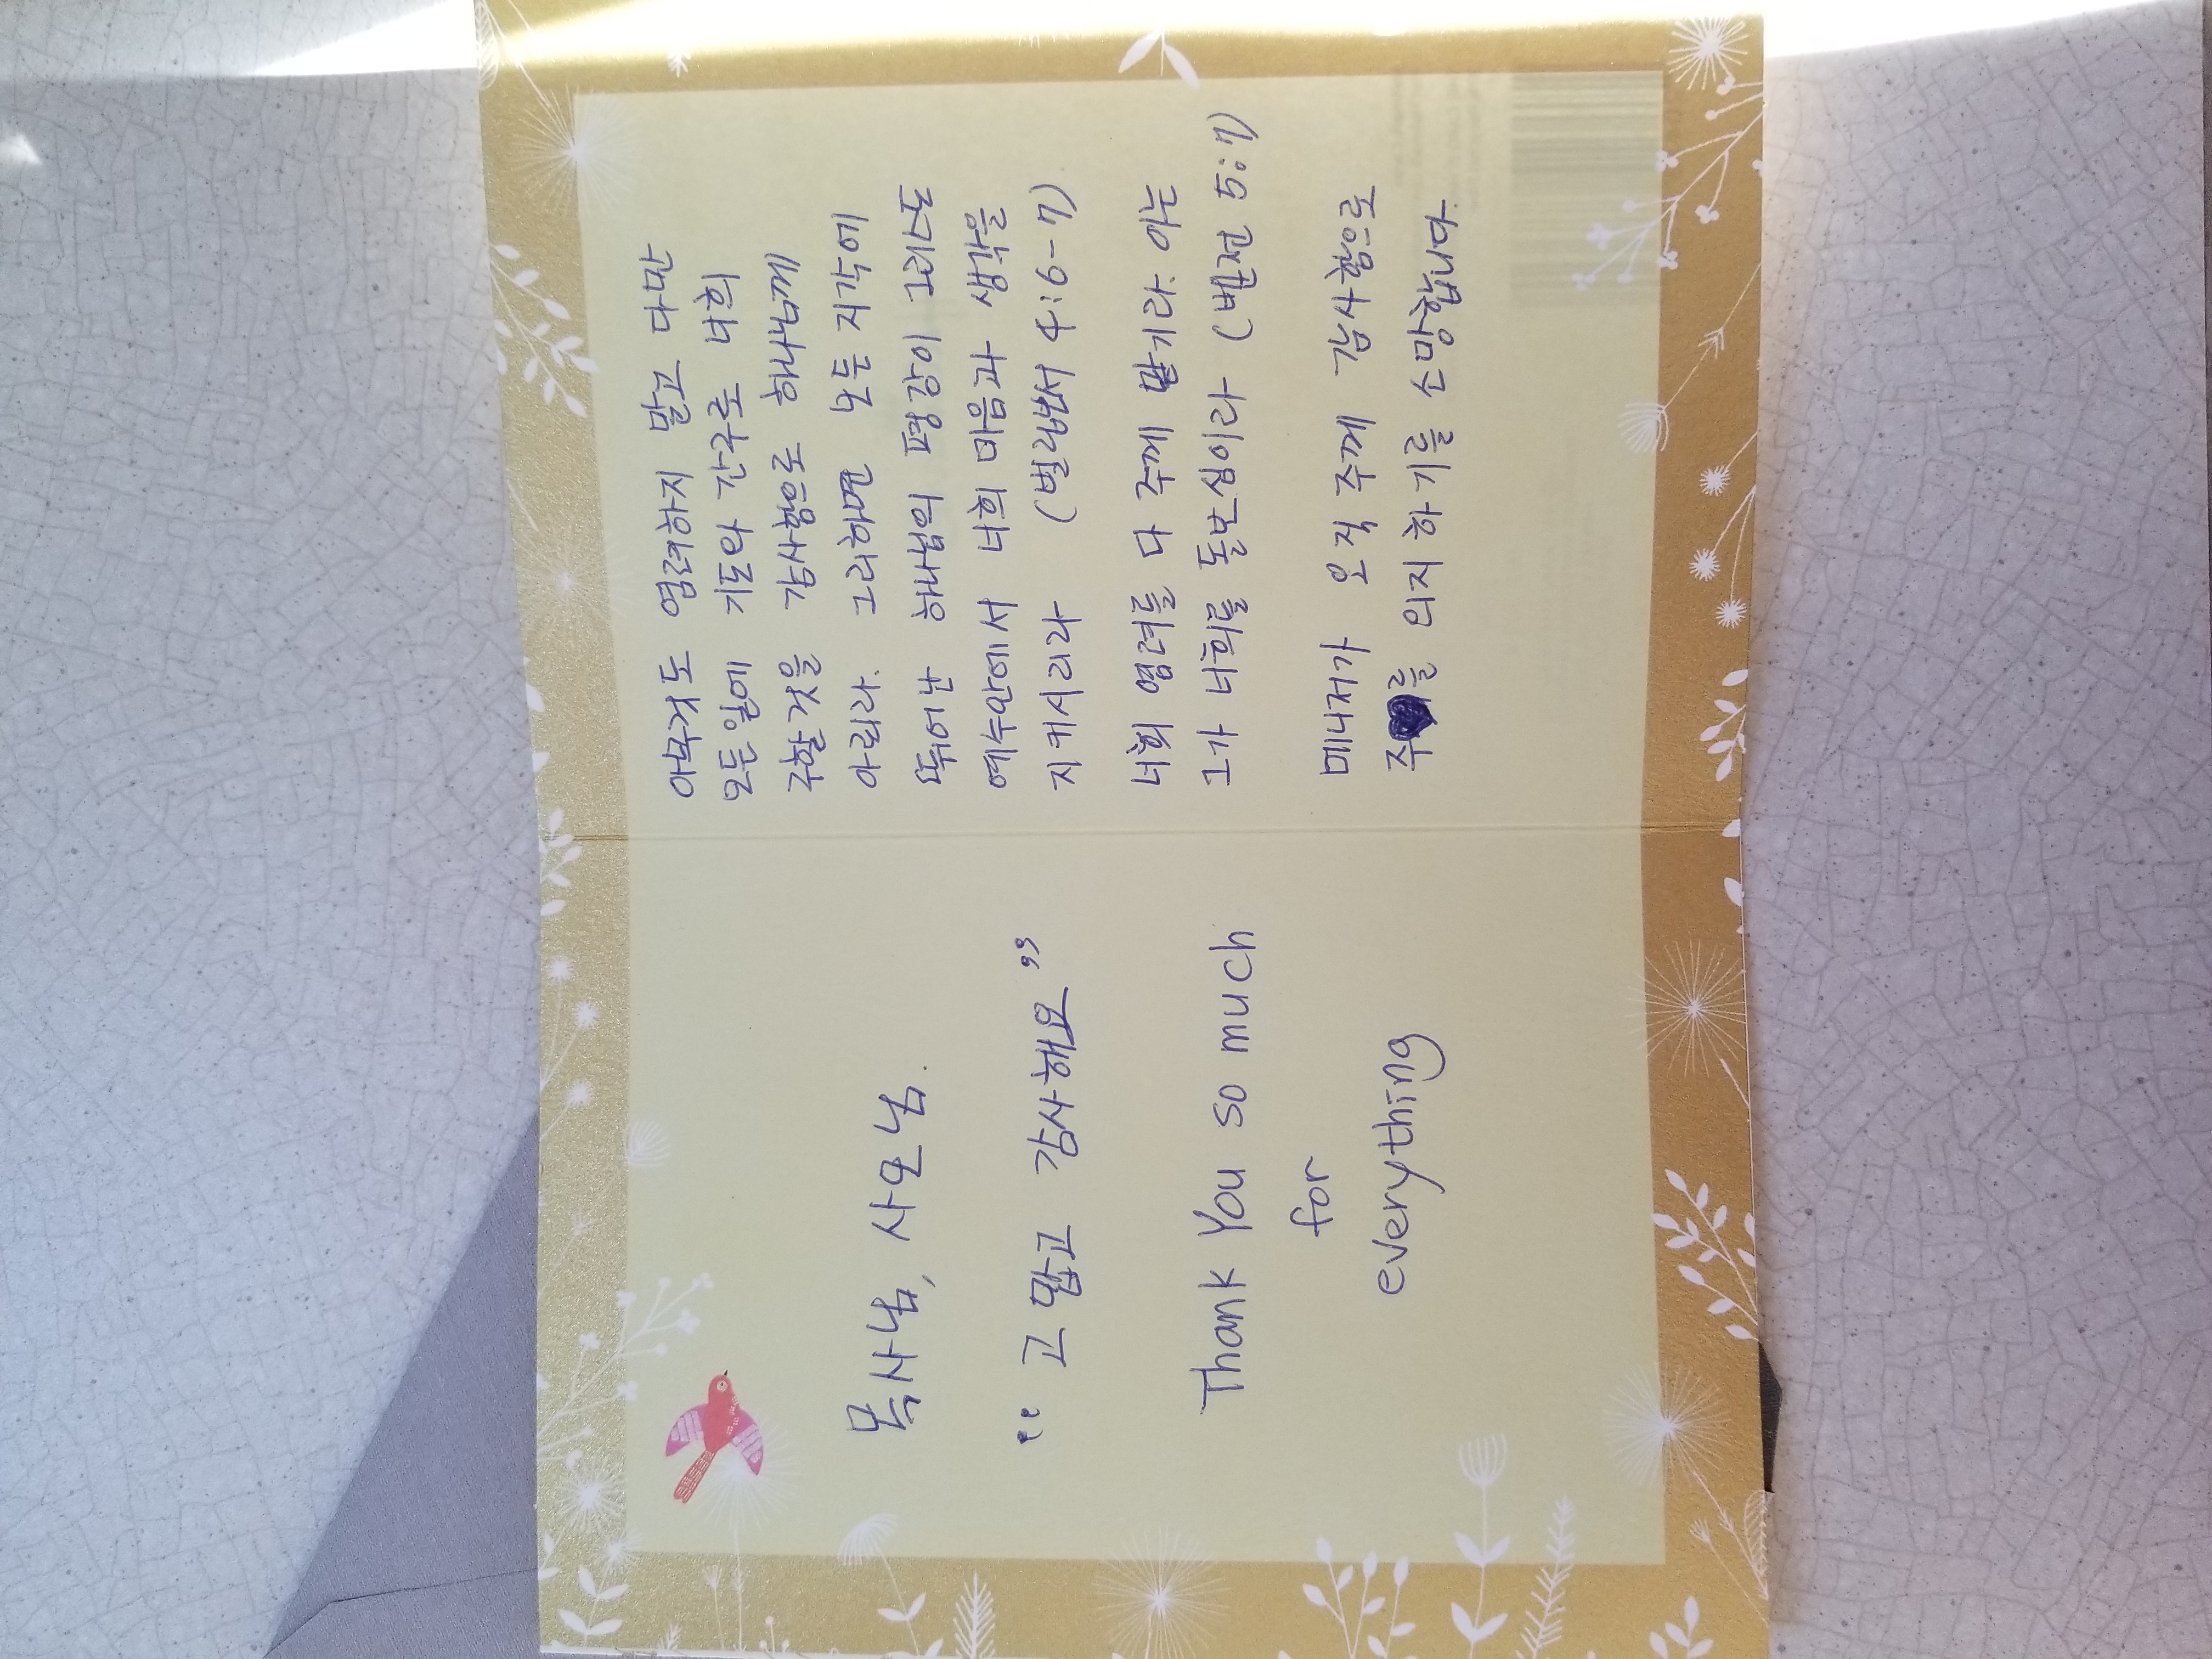 목사님, 사모님.
“ 고맙고 감사해요 ”
Thank You so much
for
everything
아무것도 염려하지 말고 다만
모든일에 기도와 간구로 너희
구할것을 감사함으로 하나님께
아뢰라. 그리하면 모든 지각에
뛰어난 하나님의 평강이 그리스도
예수안에서 너희 마음과 생각을
지키시리라 (빌립보서 4:6-7)
너희 염려를 다 주께 맡기라. 이는
그가 너희를 돌보심이라 (벧전 5:7)
메니저가 오직 주께 감사함으로
주♥를 의지하기를 소망합니다.